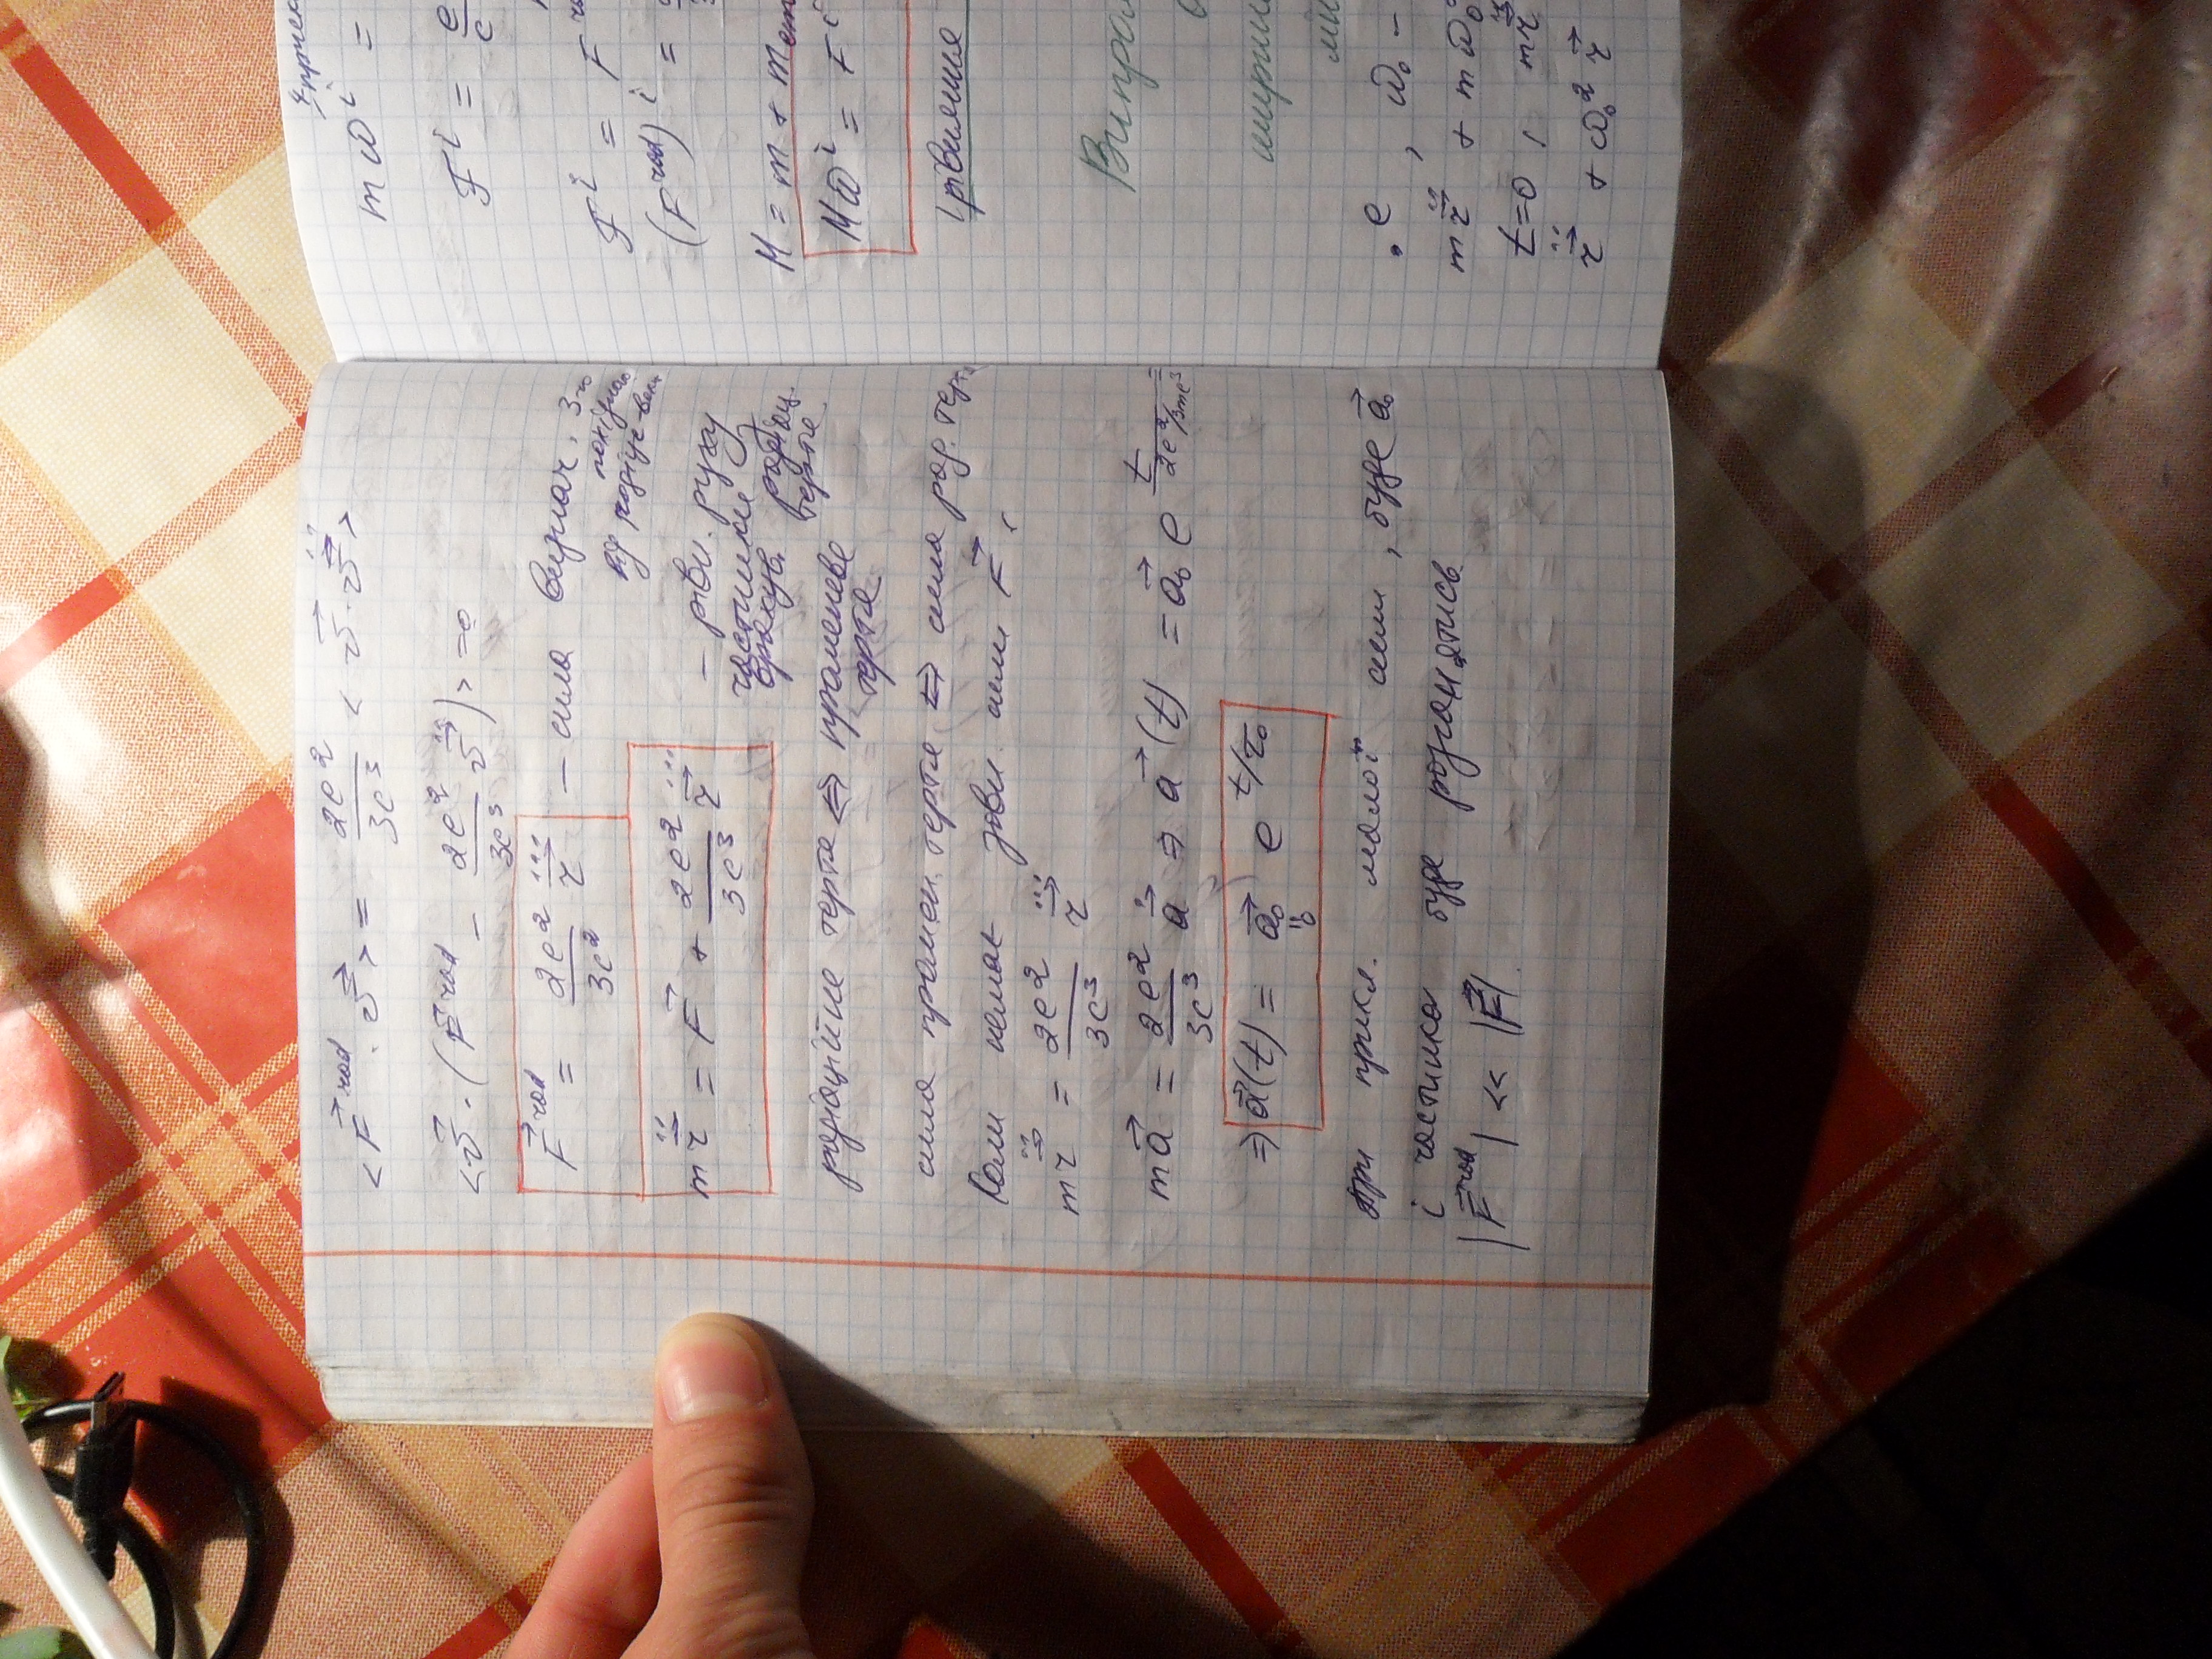 < F⃗ʳᵃᵈ · v⃗ > = 2e²/3c³ < v⃗ · v⃗̈ >
< v⃗ · ( F⃗ʳᵃᵈ − 2e²/3c³ v⃗̈ ) > = 0
F⃗ʳᵃᵈ = 2e²/3c² r⃗⃛ — сила визнач. 3-ю
похідною
від радіус-век
m r⃗̈ = F⃗ + 2e²/3c³ r⃗⃛ — рівн. руху
частинки
врахув. радіац.
тертя
радіаційне тертя ⇔ променеве
тертя
сила промен. тертя ⇔ сила рад. тер.
Коли немає зовн. сили F⃗,
m r⃗̈ = 2e²/3c³ r⃗⃛
m a⃗ = 2e²/3c³ a⃗̇ ⇒ a⃗(t) = a⃗₀ e^{t/(2e²/3mc³)} =
⇒ a⃗(t) = a⃗₀ e^{t/τ₀}
При прикл. малої сили, буде a⃗₀
і частинка буде розганятись
|F⃗ʳᵃᵈ| << |F⃗|
m ω^i =
F^i = e/c
F^i = F
(Fʳᵃᵈ)^i =
M = m + m
M ω^i = F^i
рівняння
• e, ω₀ −
m r⃗̈ + m ω₀
t=0, m r⃗̈
r⃗̈ + ω₀² r⃗